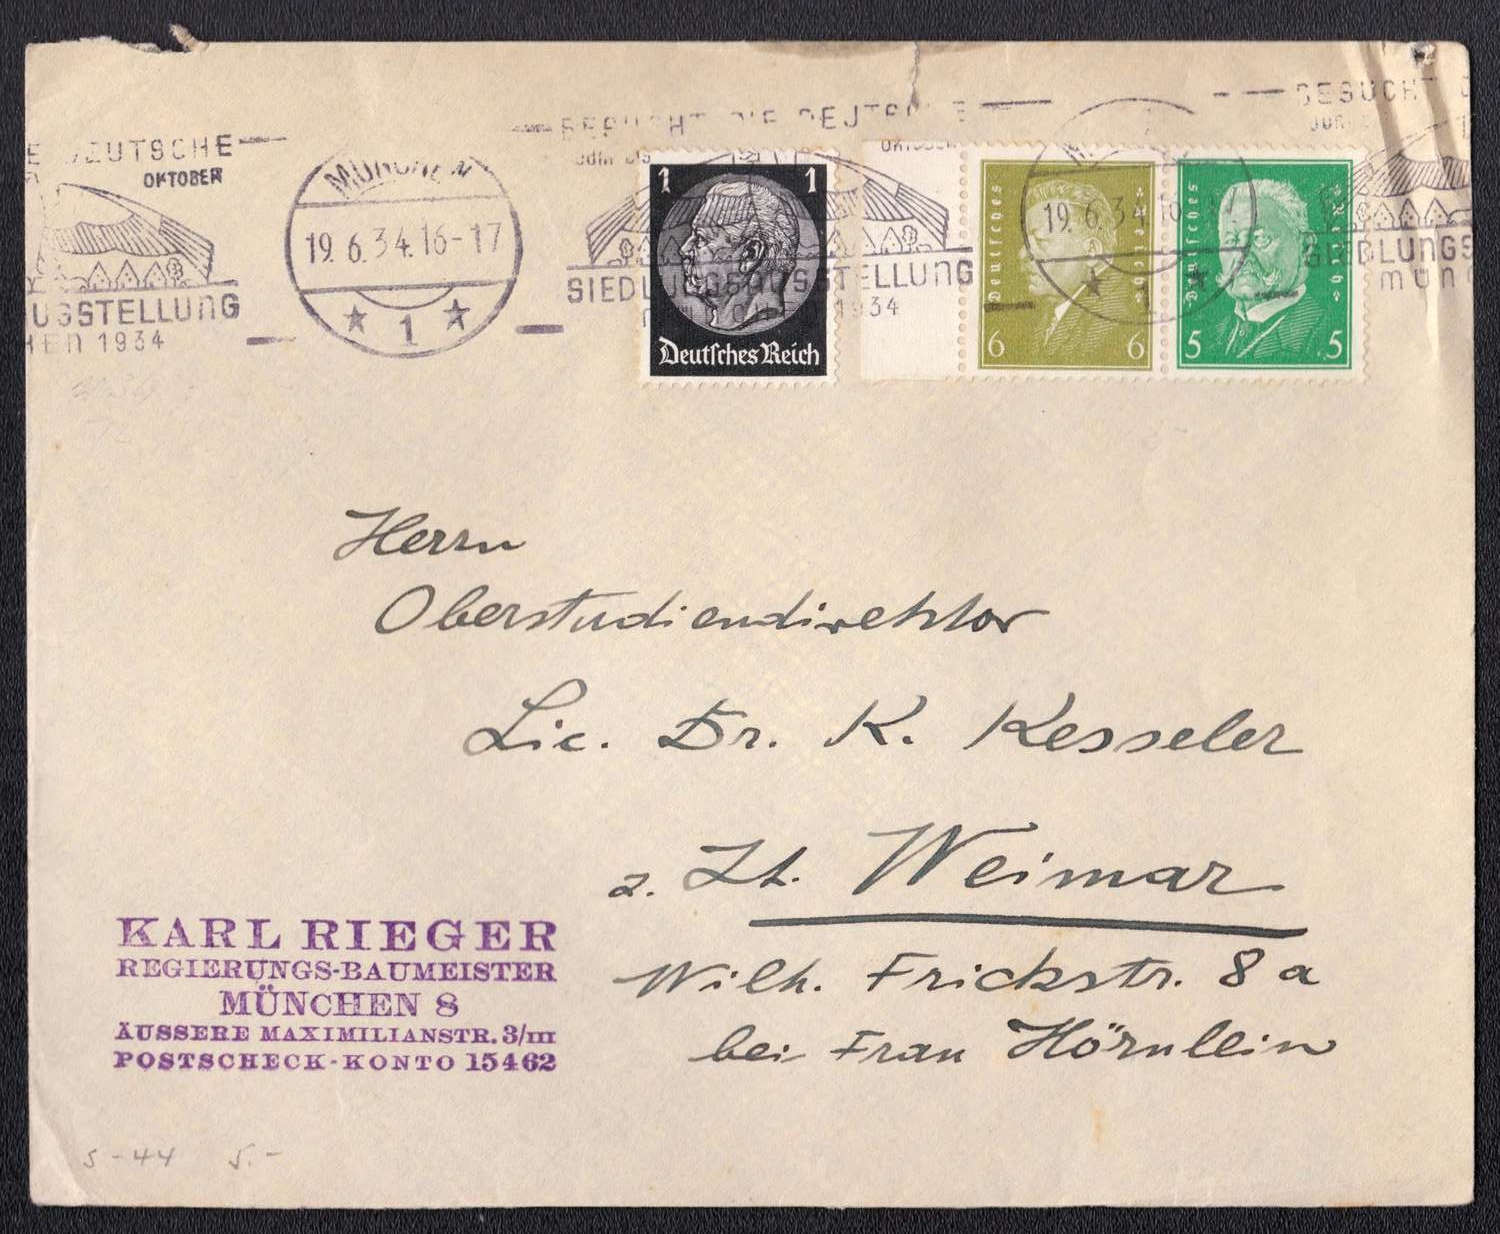 E DEUTSCHE
OKTOBER
UGSTELLUNG
HEN 1934
MÜNCHEN
19.6.34.16-17
1
BESUCHT DIE DEUTSCHE
SIEDLUNGSAUSSTELLUNG
1934
BESUCHT
SIEDLUNGS
MÜN
1 1
Deutsches Reich
Deutsches Reich
6 6
19.6.34
Deutsches Reich
5 5
Herrn
Oberstudiendirektor
Lic. Dr. K. Kesseler
z. Zt. Weimar
Wilh. Frickstr. 8 a
bei Frau Hörnlein
KARL RIEGER
REGIERUNGS-BAUMEISTER
MÜNCHEN 8
ÄUSSERE MAXIMILIANSTR. 3/III
POSTSCHECK-KONTO 15462
S-44 5.-